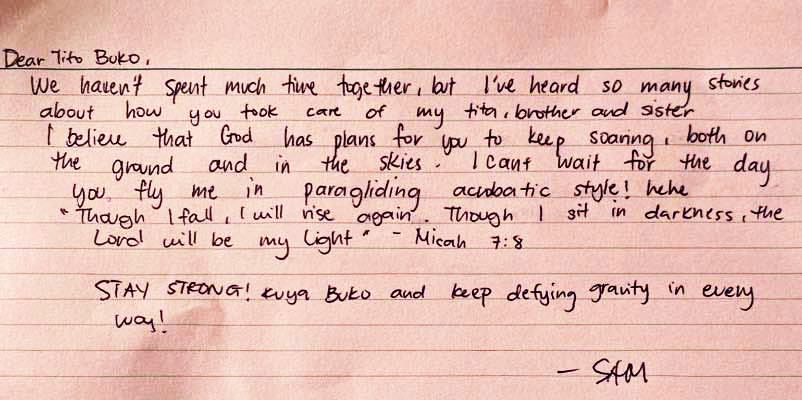 Dear Tito Buko,
We haven't spent much time together, but I've heard so many stories
about how you took care of my tita, brother and sister
I believe that God has plans for you to keep soaring, both on
the ground and in the skies. I cant wait for the day
you fly me in paragliding acrobatic style! hehe
"Though I fall, I will rise again. Though I sit in darkness, the
Lord will be my light" - Micah 7:8
STAY STRONG! Kuya Buko and keep defying gravity in every
way!
- SAM